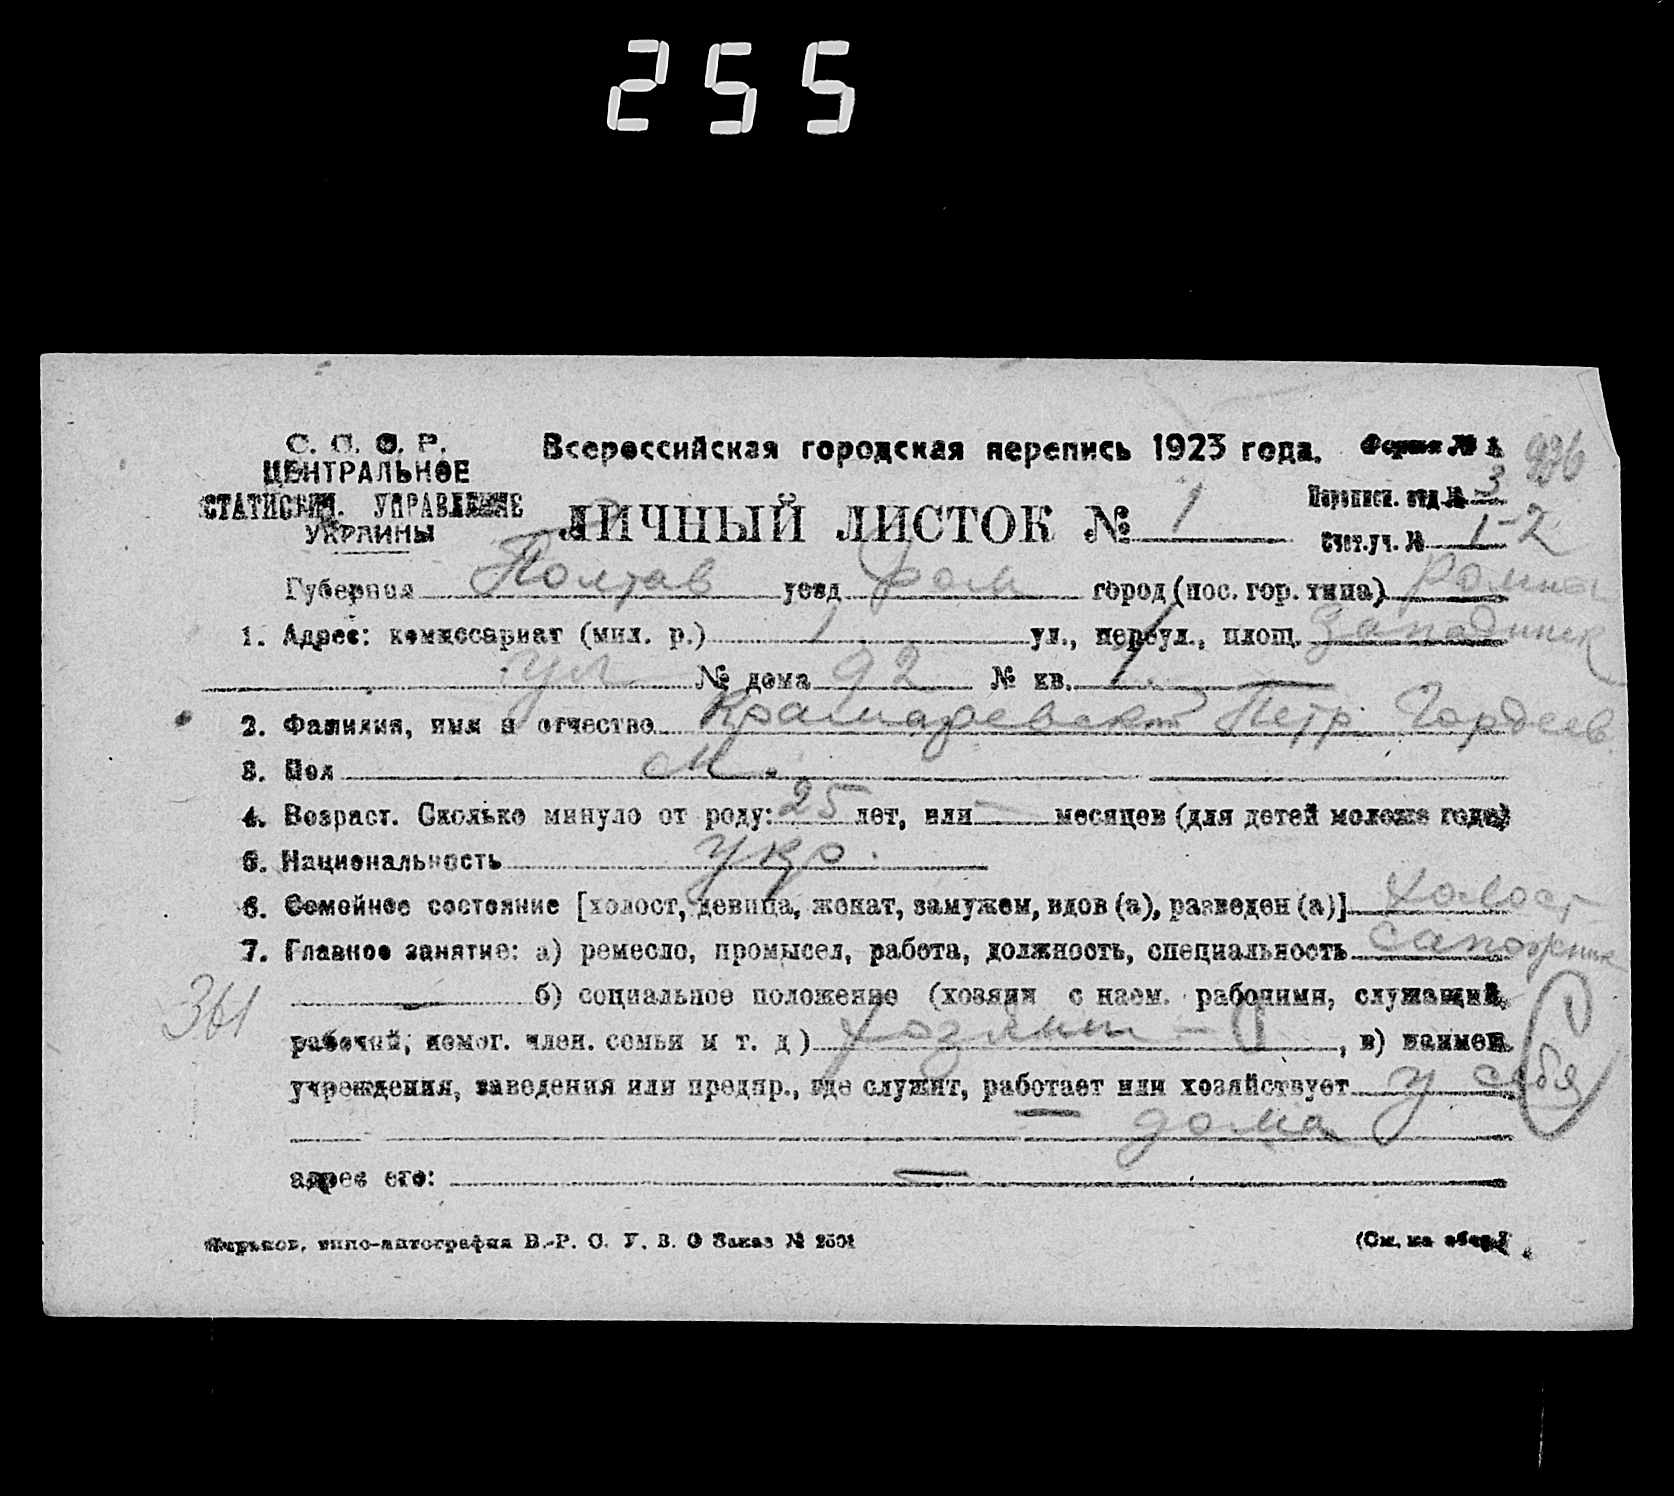 255
С. С. С. Р.
ЦЕНТРАЛЬНОЕ
СТАТИСТИЧ. УПРАВЛЕНИЕ
УКРАИНЫ
Всероссийская городская перепись 1923 года.
Форма № 1
ЛИЧНЫЙ ЛИСТОК № 1
Переписн. отд. № 3
Счет.уч. № 1-2
Губерния Полтав уезд Ром город (пос. гор. типа) Ромны
1. Адрес: комиссариат (мил. р.) 1 ул., переул., площ. Западинск
ул № дома 92 № кв. 1.
2. Фамилия, имя и отчество Петр Гордеев.
3. Пол м.
4. Возраст. Сколько минуло от роду: 25 лет, или — месяцев (для детей моложе года)
5. Национальность укр.
6. Семейное состояние [холост, девица, женат, замужем, вдов (а), разведен (а)] холост
7. Главное занятие: а) ремесло, промысел, работа, должность, специальность сапожник
361
— б) социальное положение (хозяин с наем. рабочими, служащий,
рабочий, помог. член. семьи и т. д) хозяин - , в) наимен.
учреждения, заведения или предпр., где служит, работает или хозяйствует у себя
— дома
адрес его: —
Харьков, типо-литография В.-Р. С. У. В. О Заказ № 2501
(См. на обор.)